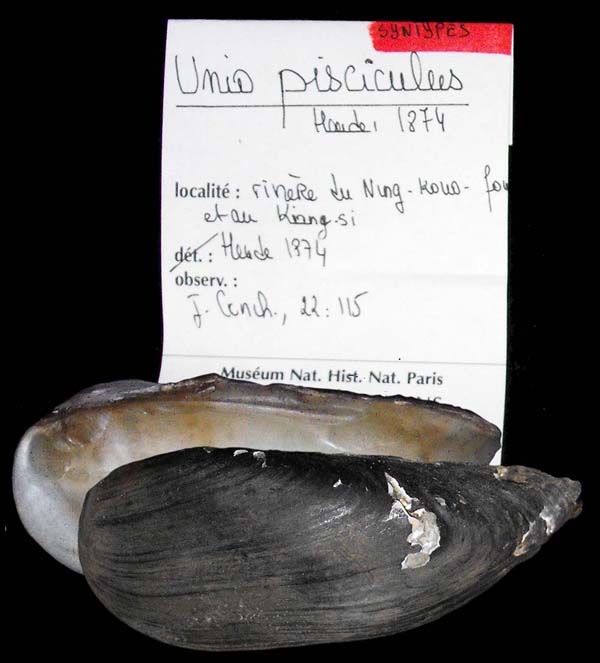 SYNTYPES
Unio pisciculus
Heude, 1874
localité : rivière du Ning-kouo- fou
et au Kiang-si
dét. : Heude 1874
observ. :
J. Conch., 22: 115
Muséum Nat. Hist. Nat. Paris